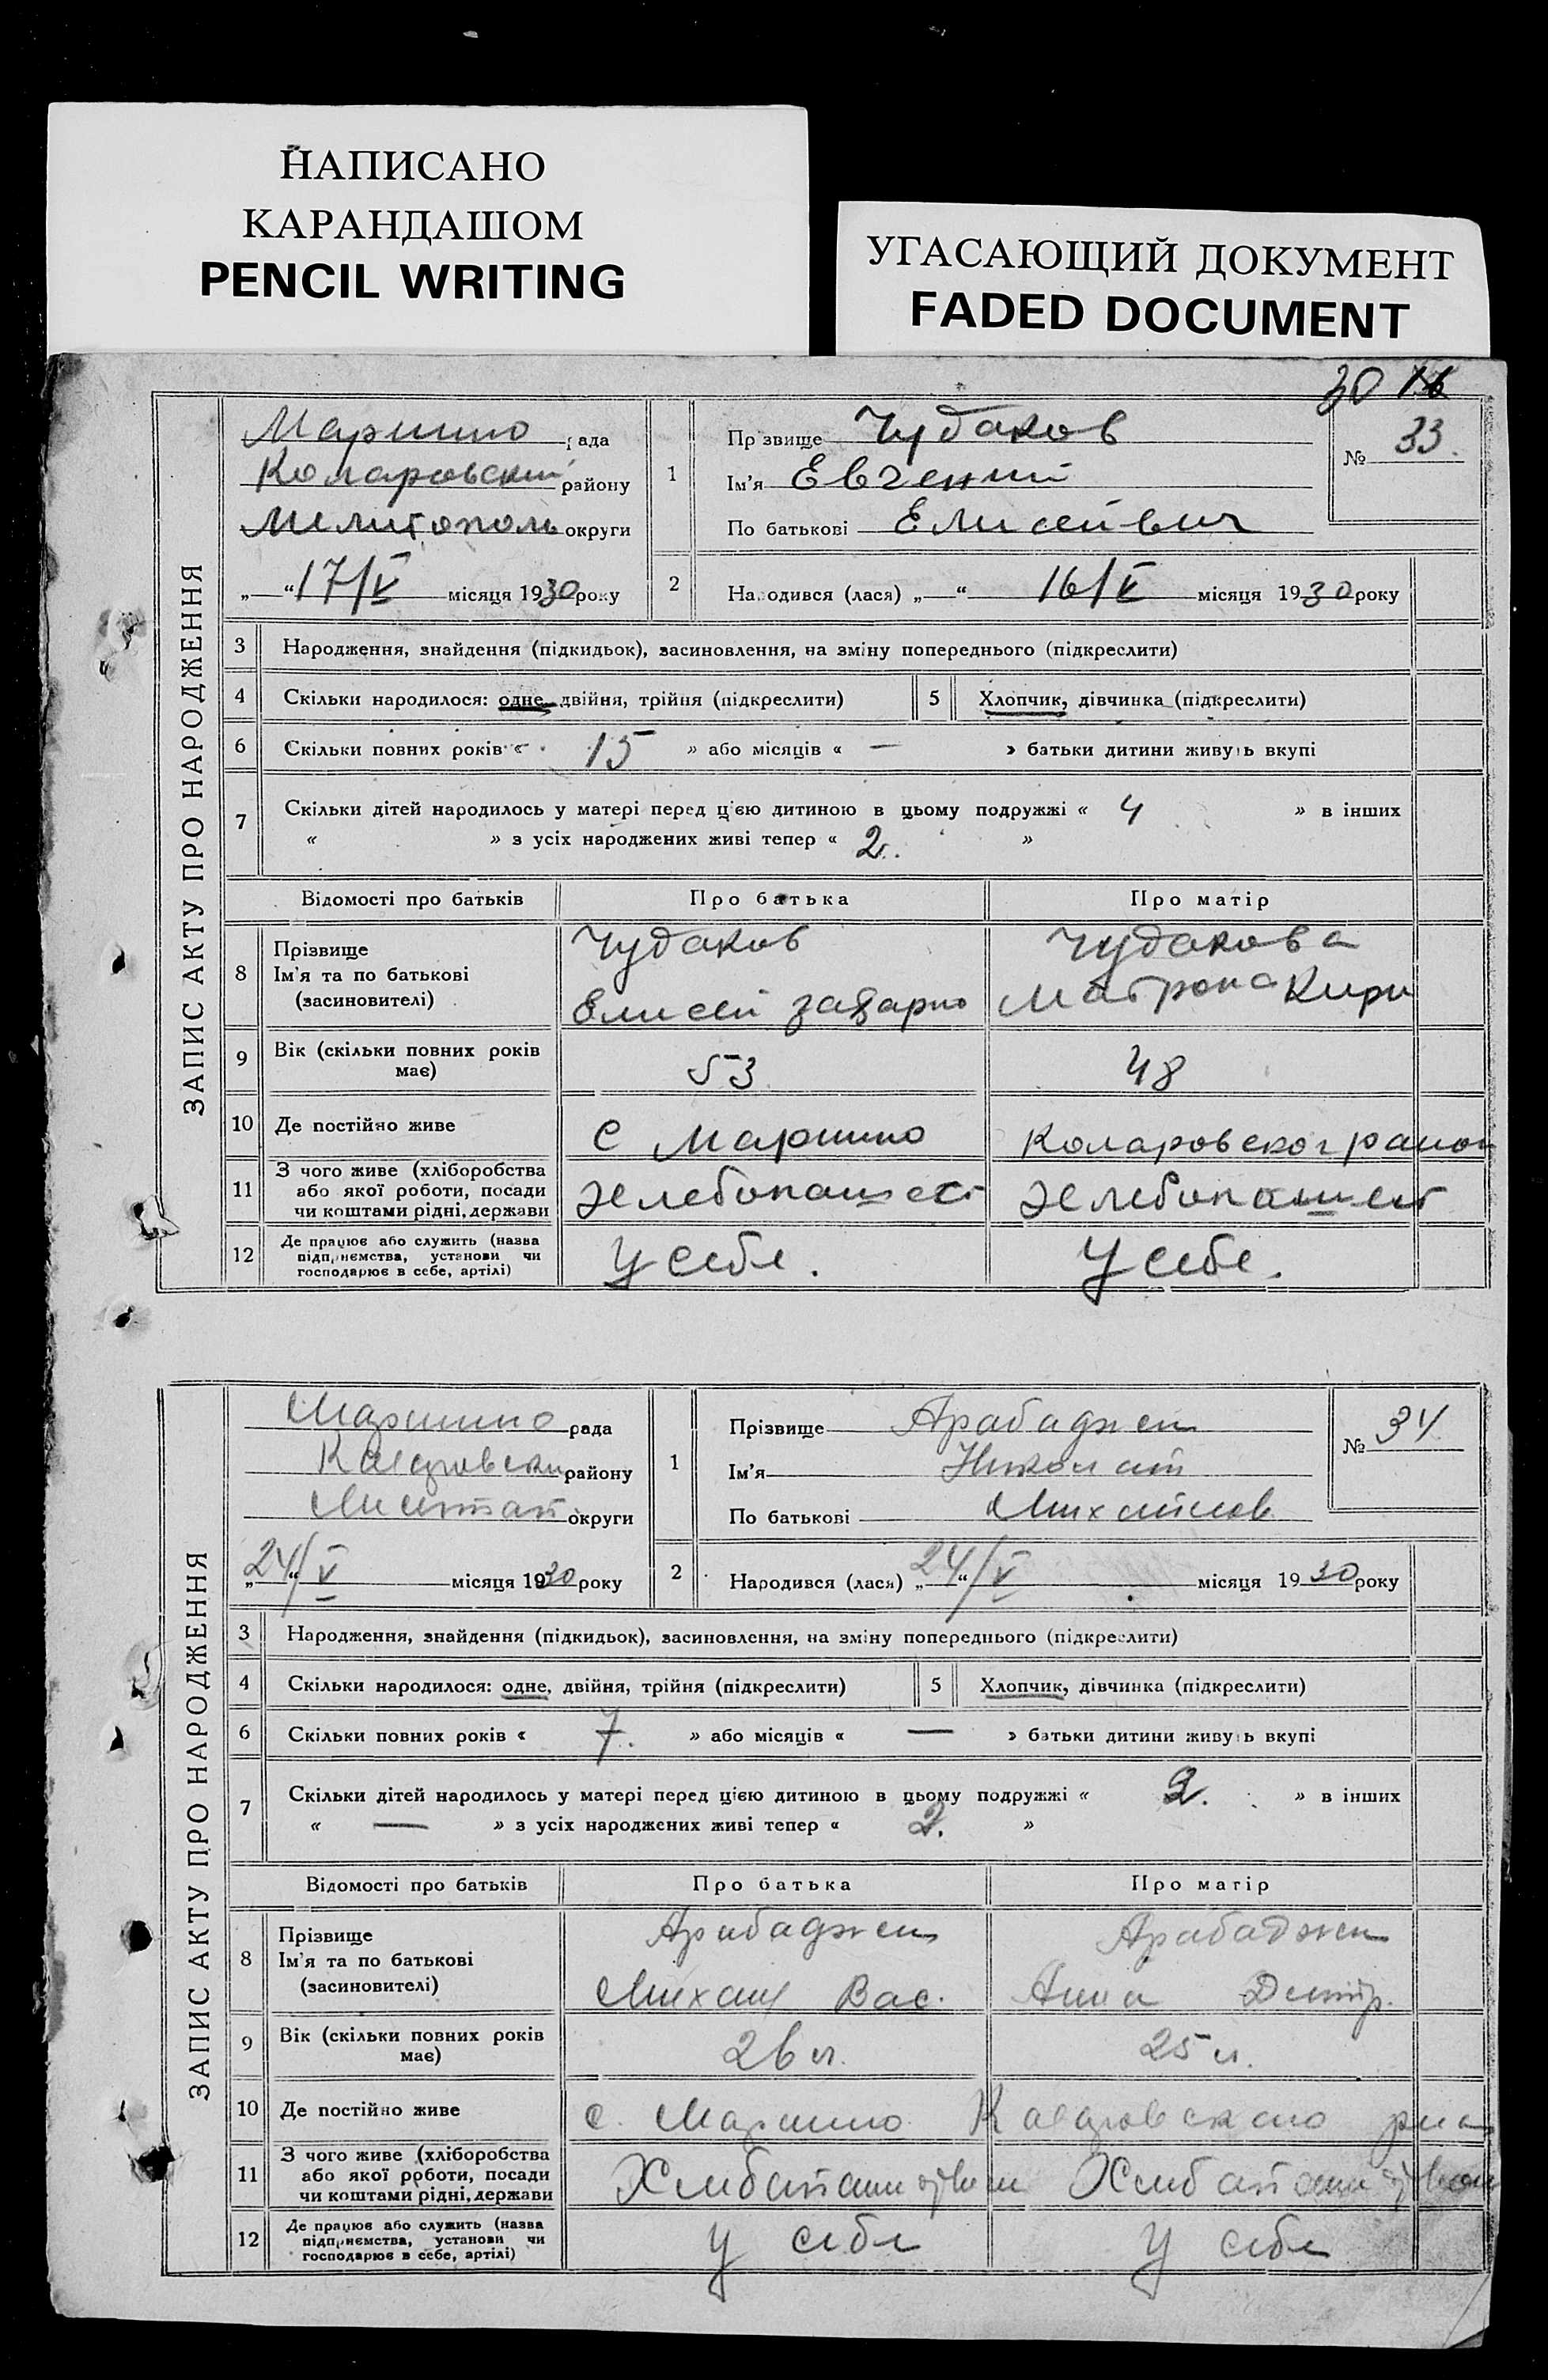 НАПИСАНО
КАРАНДАШОМ
PENCIL WRITING
УГАСАЮЩИЙ ДОКУМЕНТ
FADED DOCUMENT
30 16
ЗАПИС АКТУ ПРО НАРОДЖЕННЯ
Маринно рада
Коларовский району
Мелитополь округи
„ “ 17/V місяця 1930 року
1
Прізвище Чудаков
Ім'я Евгений
По батькові Елисейвич
№ 33.
2 Народився (лася) „ “ 16/V місяця 1930 року
3 Народження, знайдення (підкидьок), засиновлення, на зміну попереднього (підкреслити)
4 Скільки народилося: одне, двійня, трійня (підкреслити) 5 Хлопчик, дівчинка (підкреслити)
6 Скільки повних років « 15 » або місяців « — » батьки дитини живуть вкупі
7 Скільки дітей народилось у матері перед цією дитиною в цьому подружжі « 4 » в інших
« » з усіх народжених живі тепер « 2. »
Відомості про батьків Про батька Про матір
8 Прізвище
Ім'я та по батькові
(засиновителі)
Чудаков
Елисей Захарно
Чудакова
Матрона Кири
9 Вік (скільки повних років
має)
53 48
10 Де постійно живе с Маринно Коларовског район
11 З чого живе (хліборобства
або якої роботи, посади
чи коштами рідні, держави
Хлебопашест Хлебопашест
12 Де працює або служить (назва
підприємства, установи чи
господарює в себе, артілі)
У себе. У себе.
ЗАПИС АКТУ ПРО НАРОДЖЕННЯ
Маринно рада
району
округи
„ 24/V “ місяця 1930 року
1
Прізвище Арабаджи
Ім'я Николай
По батькові Михайлов
№ 34
2 Народився (лася) „ 24/V “ місяця 1930 року
3 Народження, знайдення (підкидьок), засиновлення, на зміну попереднього (підкреслити)
4 Скільки народилося: одне, двійня, трійня (підкреслити) 5 Хлопчик, дівчинка (підкреслити)
6 Скільки повних років « 7. » або місяців « — » батьки дитини живуть вкупі
7 Скільки дітей народилось у матері перед цією дитиною в цьому подружжі « 2. » в інших
« — » з усіх народжених живі тепер « 2. »
Відомості про батьків Про батька Про матір
8 Прізвище
Ім'я та по батькові
(засиновителі)
Арабаджи
Михаил Вас.
Арабаджи
Анна Дмитр.
9 Вік (скільки повних років
має)
26 л. 25 л.
10 Де постійно живе с. Маринно
11 З чого живе (хліборобства
або якої роботи, посади
чи коштами рідні, держави
12 Де працює або служить (назва
підприємства, установи чи
господарює в себе, артілі)
У себе У себе